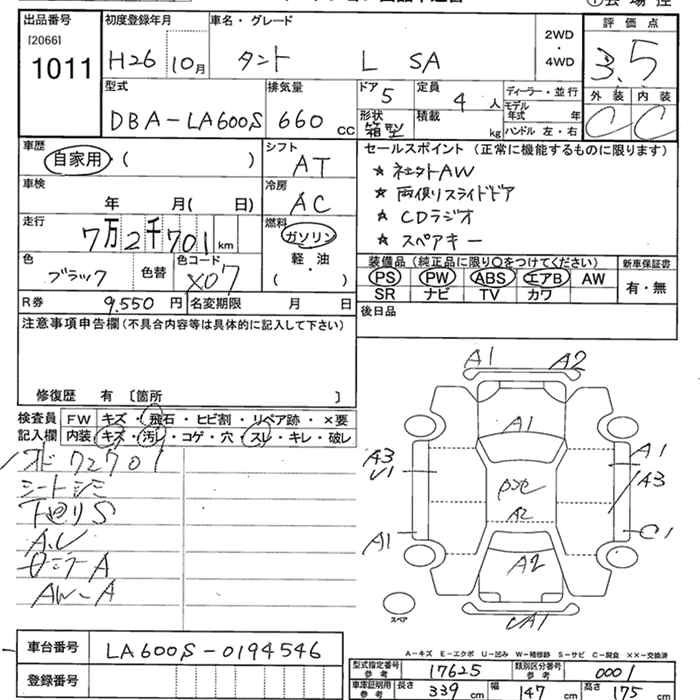 出品番号 初度登録年月 車名・グレード 2WD・4WD 評価点
[2066] 1011 H26 10月 タント L SA 3.5
型式 排気量 ドア 5 定員 4 人 ディーラー・並行 外装 内装
DBA-LA600S 660 CC 形状 箱型 積載 kg モデル年式 年 C C
ハンドル 左・右
車歴 自家用・( ) シフト AT セールスポイント (正常に機能するものに限ります)
★ 社外AW
車検 年 月( 日) 冷房 AC ★ 両側スライドドア
★ CDラジオ
走行 7万2千701km 燃料 ガソリン ★ スペアキー
軽・油
( )
色 ブラック 色替 色コード X07 装備品 (純正品に限り○をつけてください) 新車保証書
PS PW ABS エアB AW 有・無
SR ナビ TV カワ
R券 9.550 円 名変期限 月 日 後日品
注意事項申告欄(不具合内容等は具体的に記入して下さい)
修復歴 有 〔箇所 〕
検査員 FW キズ・飛石・ヒビ割・リペア跡・×要
記入欄 内装 キズ・汚レ・コゲ・穴・スレ・キレ・破レ
72701
シートシミ
下廻りS
AW-A
A1 A2
A1
A3 A1
A3
A2
A1 A2 C1
A1
スペア
A-キズ E-エクボ U-凹み W-補修跡 S-サビ C-腐食 ××-交換済
車台番号 LA600S-0194546
登録番号
型式指定番号 参考 17625 類別区分番号 参考 0001
車庫証明用 参考 長さ 339 cm 幅 147 cm 高さ 175 cm